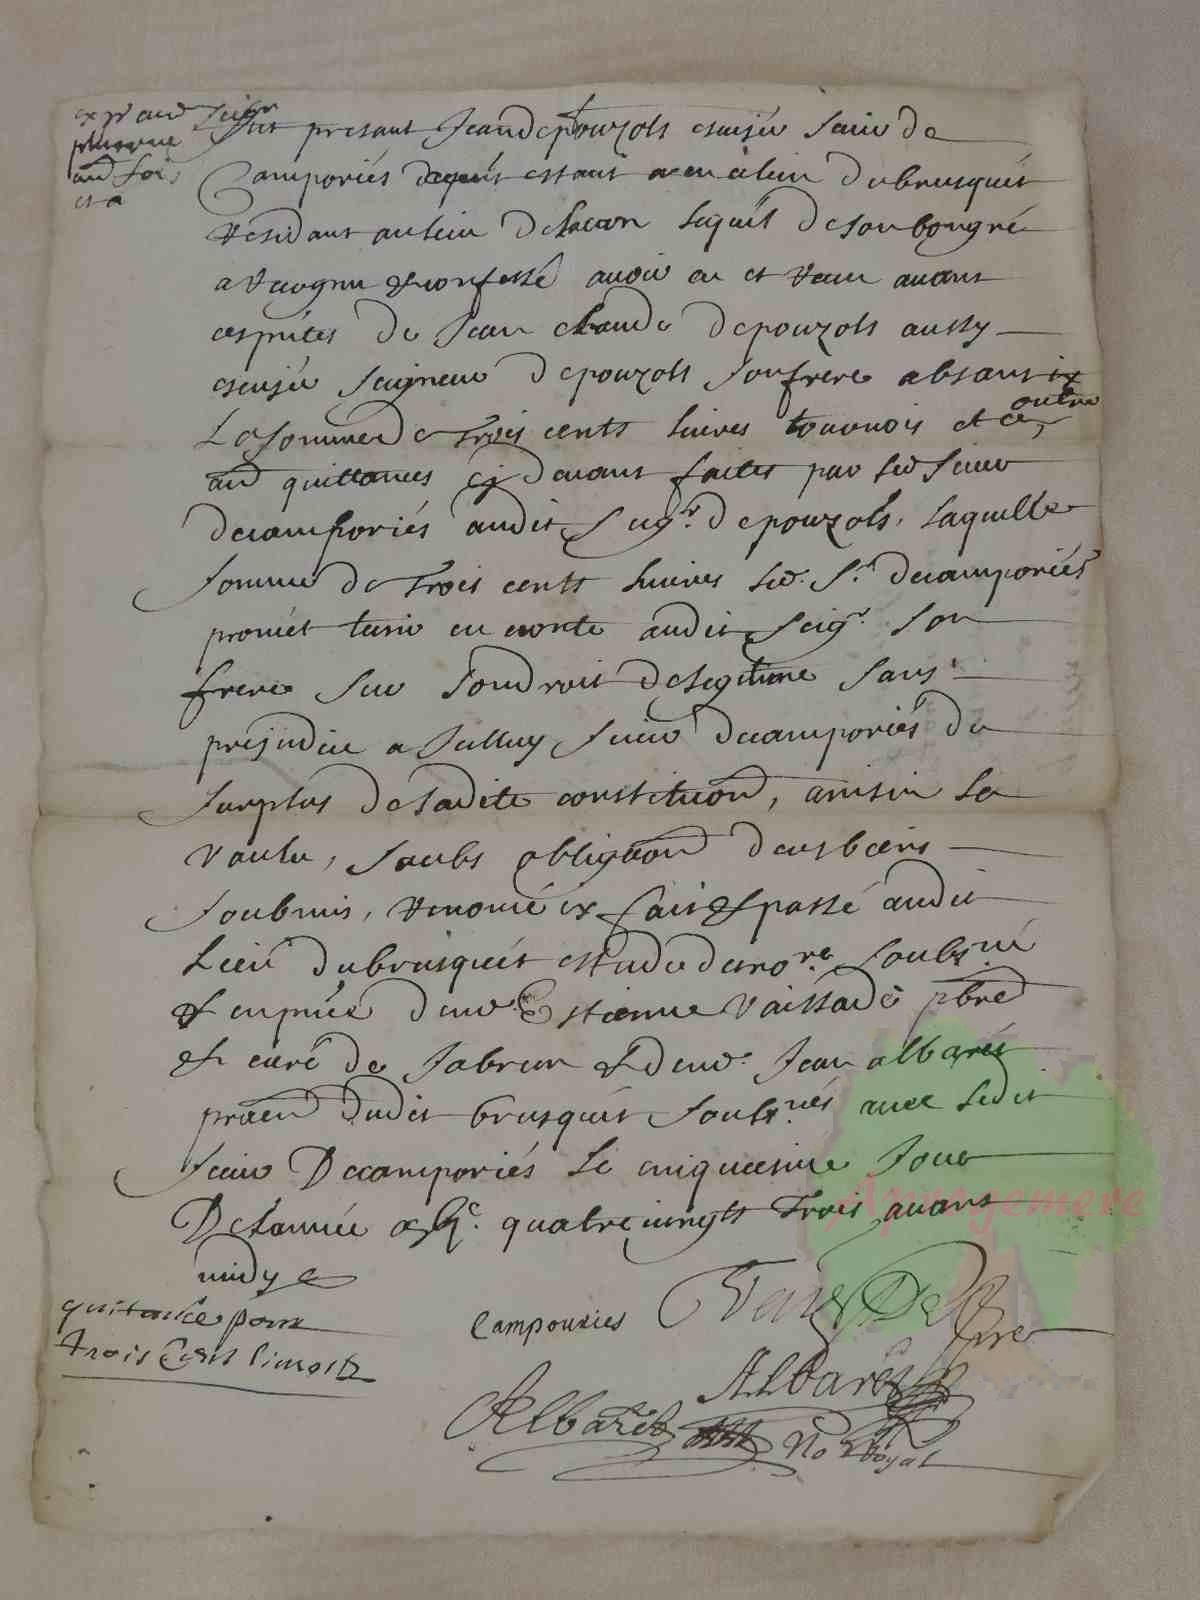 fut presant Jean depouzols escuier sieur de
Camporiés dequis estant a en ce lieu dubrusquet
Residant au lieu de lequel deson bongré
a Recogneu & confessé avoir eu et Receu avant
cesprntes de Jean claude depouzols aussy
escuier seigneur depouzols sonfrere absant
La somme de Trois cents livres tournois et ce outre
aud quittances cy devant faites par led sieur
decamporiés audit seigr. depouzols, laquelle
somme de Trois cents livres led. sr. decamporiés
promet tenir en conte audit seigr. son
frere sur sondroit delegitime sans
prejudice a icelluy sieur decamporiés du
surplus deladite constituon, ainsin la
voulu, soubs obligaon desesbiens
soubmis, Renoncé ex fait & passé audit
Lieu dubrusquet estude denore. soubsné
& enprnce demr. Estienne Vaissade pbre
& curé de & demr. Jean albarés
praen dudit brusquet soubsnés avec ledit
sieur Decamporiés le cinquiesme Jour
Delannée quatrevingts Trois avant
midy
quitance pour
trois Cens livres
Campouries
pre
Albarés
Albaret No Royal
Apragemere